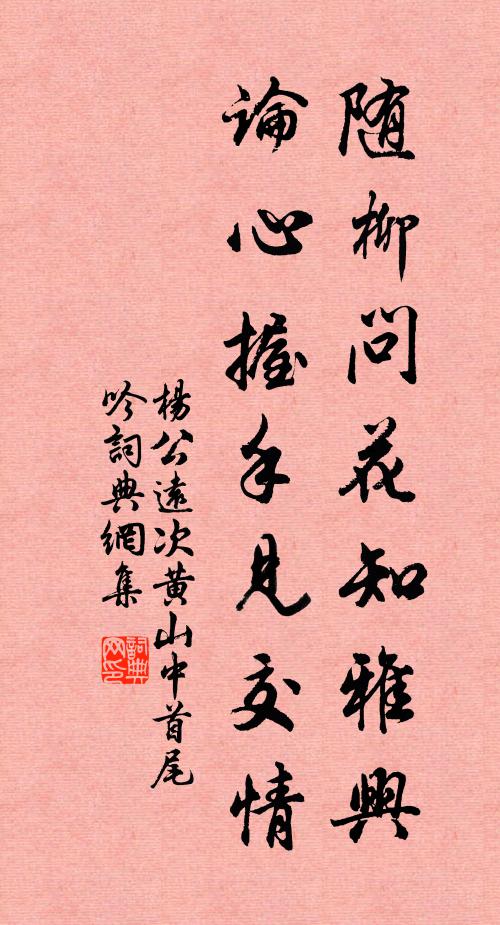 随柳問花知雅興
論心握手見交情
楊公遠次黄山中首尾
吟詞典網集
詞典网印